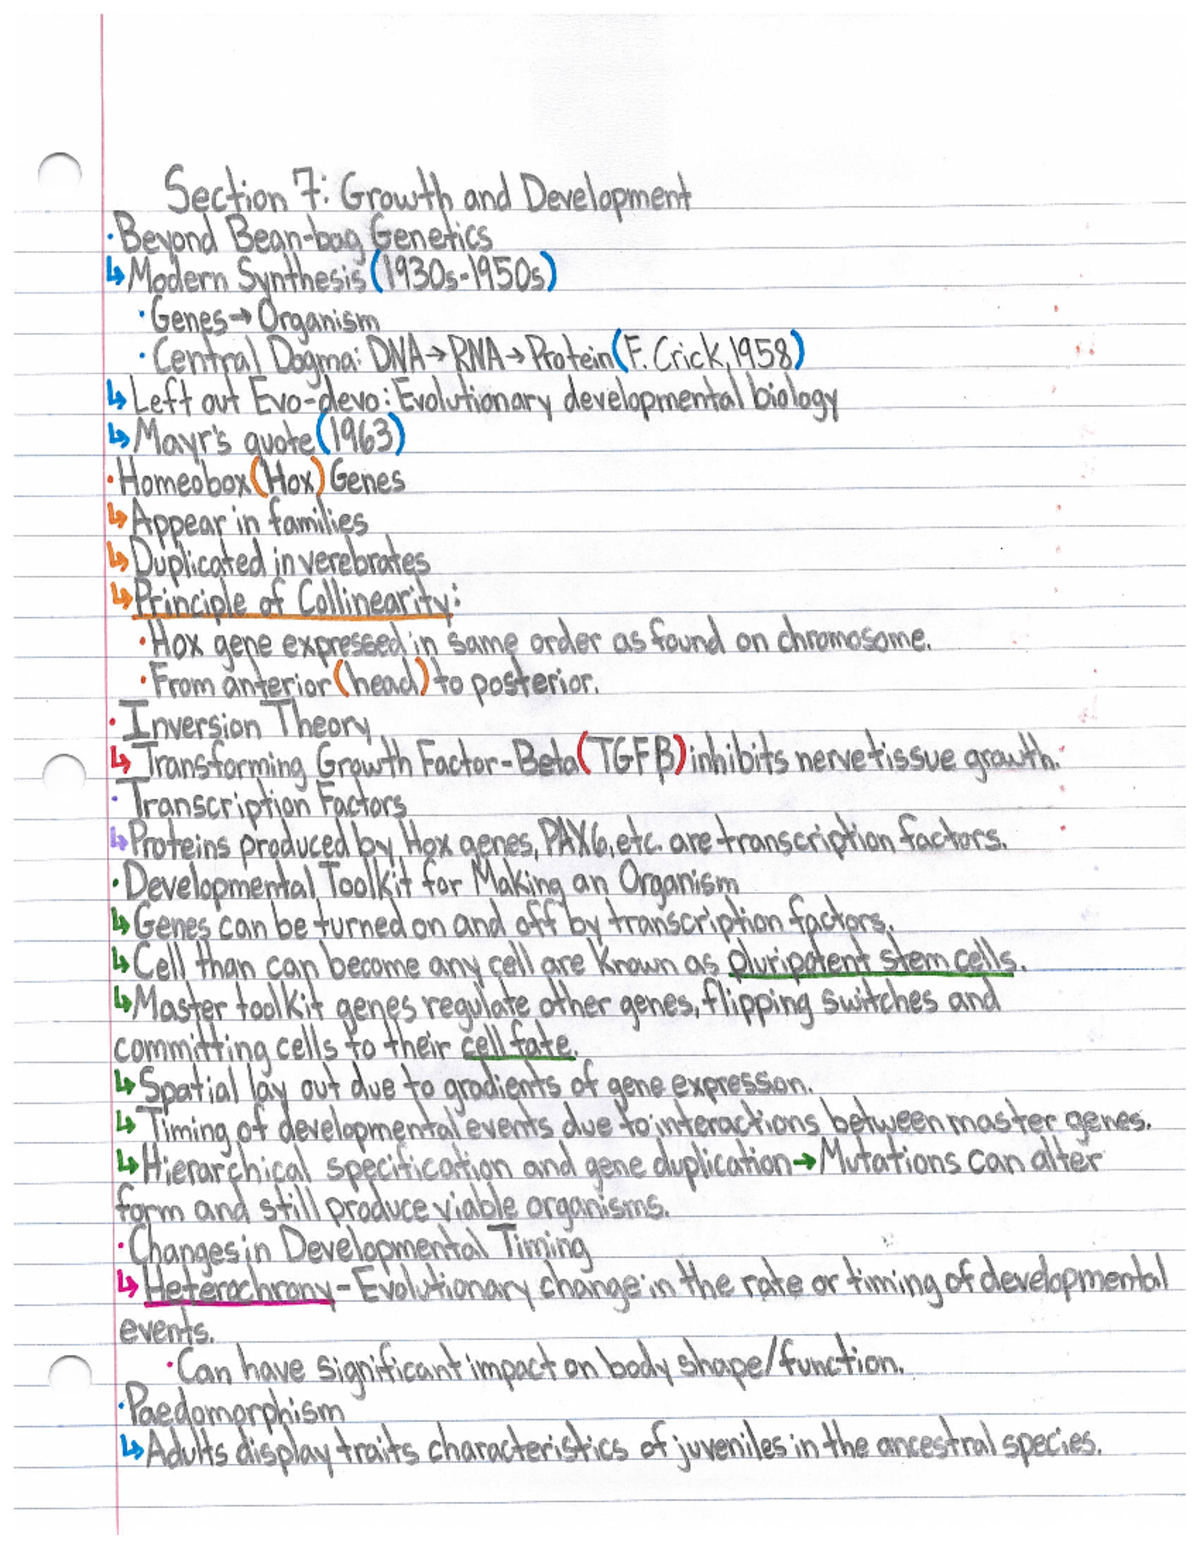 Section 7: Growth and Development
· Beyond Bean-bag Genetics
↳ Modern Synthesis (1930s-1950s)
· Genes → Organism
· Central Dogma: DNA → RNA → Protein (F. Crick, 1958)
↳ Left out Evo-devo: Evolutionary developmental biology
↳ Mayr's quote (1963)
· Homeobox (Hox) Genes
↳ Appear in families
↳ Duplicated in verebrates
↳ Principle of Collinearity:
· Hox gene expressed in same order as found on chromosome.
· From anterior (head) to posterior.
· Inversion Theory
↳ Transforming Growth Factor-Beta (TGFβ) inhibits nerve tissue growth.
· Transcription Factors
↳ Proteins produced by Hox genes, PAX6, etc. are transcription factors.
· Developmental Toolkit for Making an Organism
↳ Genes can be turned on and off by transcription factors.
↳ Cell than can become any cell are known as pluripotent stem cells.
↳ Master toolkit genes regulate other genes, flipping switches and
committing cells to their cell fate.
↳ Spatial lay out due to gradients of gene expression.
↳ Timing of developmental events due to interactions between master genes.
↳ Hierarchical specification and gene duplication → Mutations can alter
form and still produce viable organisms.
· Changes in Developmental Timing
↳ Heterochrony - Evolutionary change in the rate or timing of developmental
events.
· Can have significant impact on body shape/function.
· Paedomorphism
↳ Adults display traits characteristics of juveniles in the ancestral species.